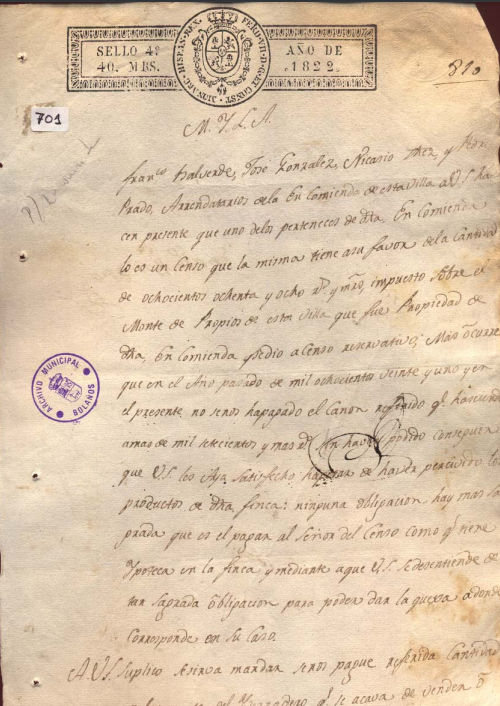 SELLO 4º
40. MRS.
HISPAN. REX. FERD. VII. D. G. ET CONST. MONARC.
AÑO DE
1822.
810
701
M. Y. S. A.
Franco Valverde, Jose Gonzalez, Nicasio y
Prado, Arrendatarios dela Encomienda de esta villa a V.S.
cen presente que uno delos perteneces de dha. Encomienda
lo es un Censo que la misma tiene asu favor dela Cantidad
de ochocientos ochenta y ocho rs. y mrs. impuesto sobre el
Monte de Propios de esta villa que fue Propiedad de
dha. Encomienda y sedio a Censo reservativo; Mas ocurre
que en el Año pasado de mil ochocientos veinte y uno y en
el presente no senos hapagado el Canon referido qe.
amas de mil setecientos y mas rs. sin haver podido conseguir
que V.S. los aya satisfecho, de haver percivido los
productos de dha. finca: ninguna obligacion hay mas sa
grada que es el pagar al señor del Censo como qe. tiene
Ypoteca en la finca y mediante aque V.S. sedesentiende de
tan sagrada obligacion para poder dar la quexa adonde
corresponde en su Caso.
A V.S. suplico sesirva mandar senos pague referida Cantidad
del qe. se acava de vender ó
ARCHIVO MUNICIPAL
BOLAÑOS